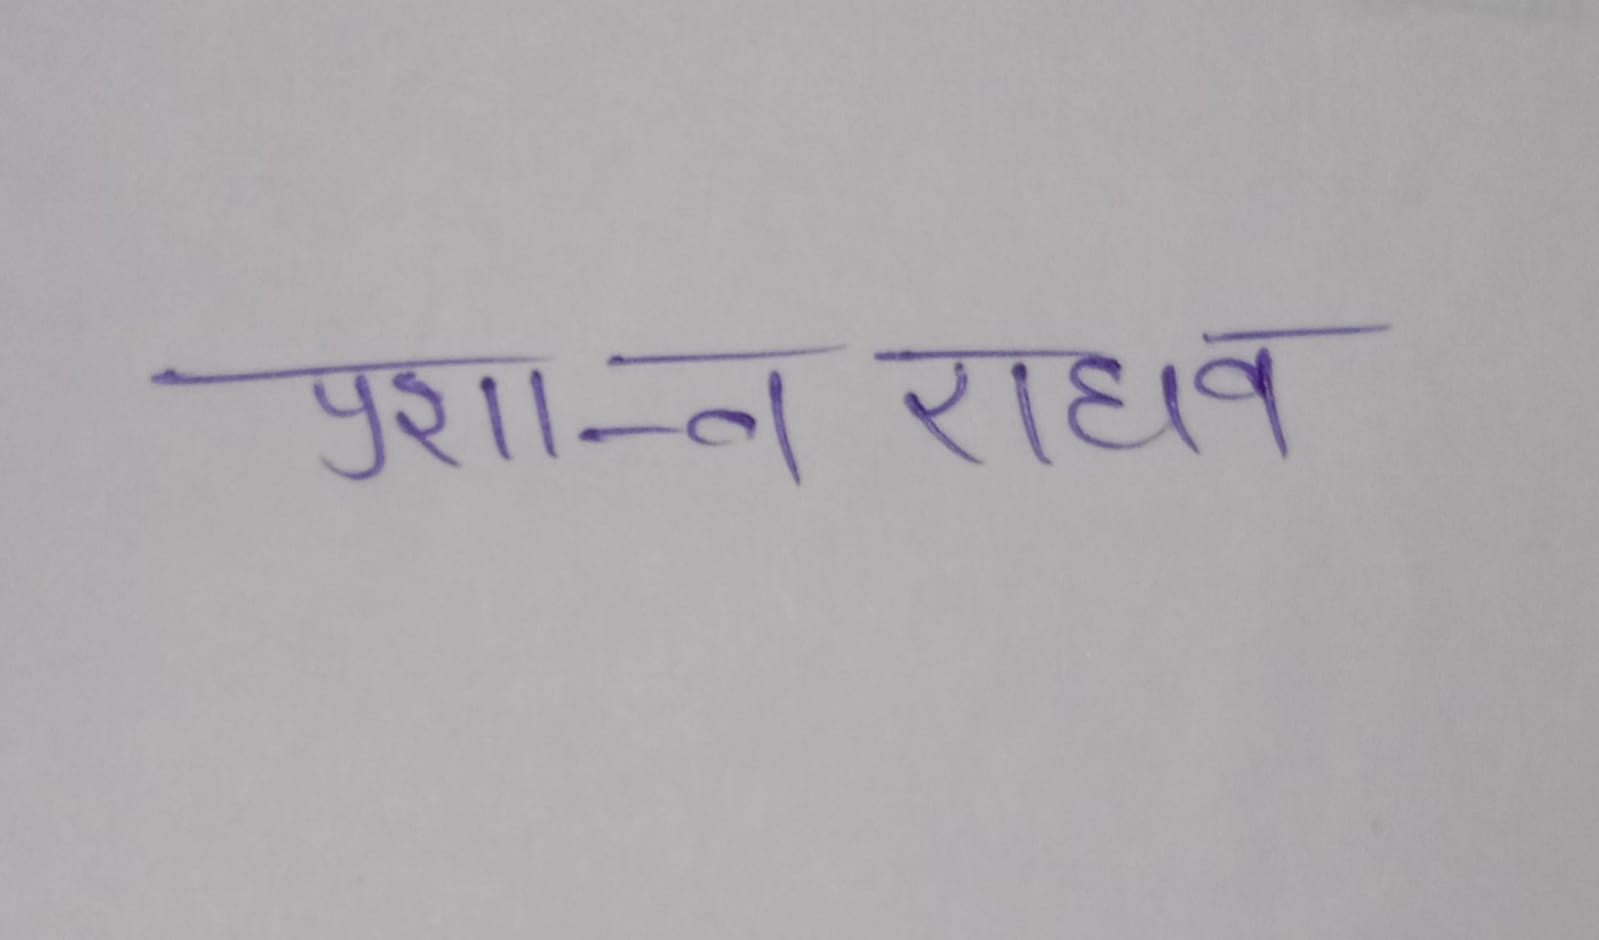 प्रशान्त राघव